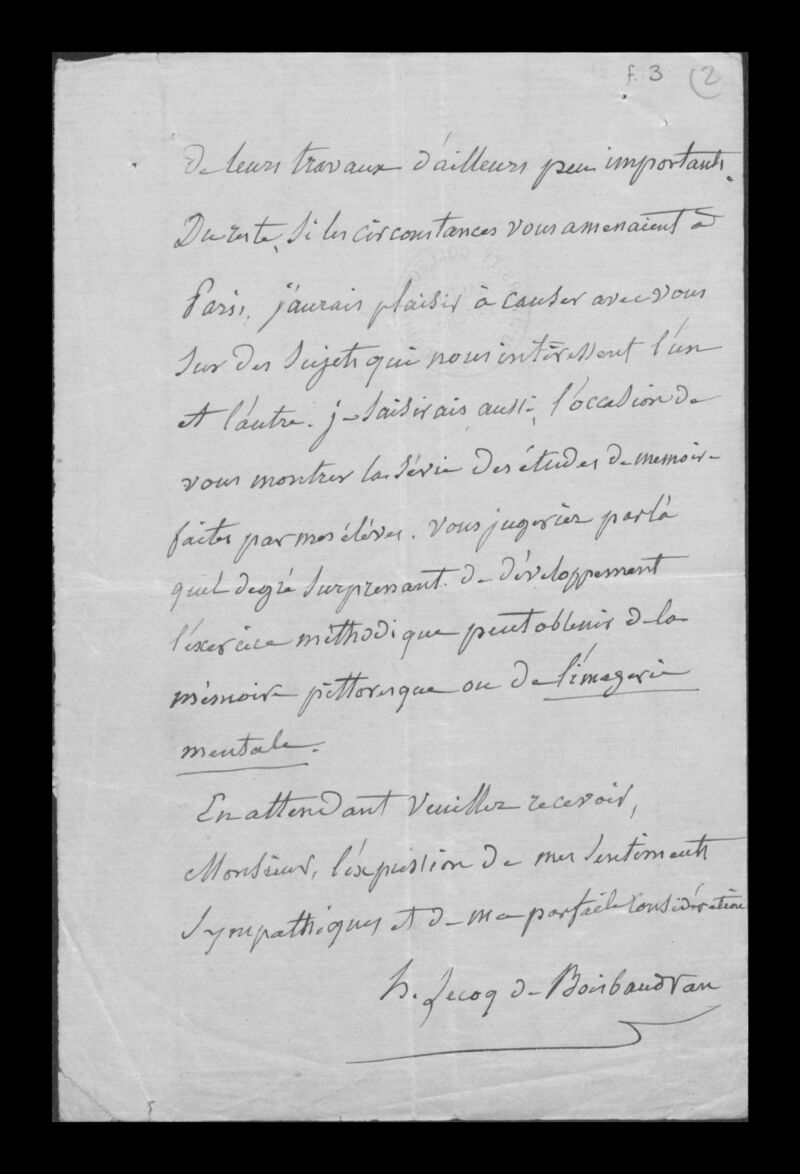 f. 3 (2
de leurs travaux d'ailleurs peu importants.
Du reste, si les circonstances vous amenaient à
Paris, j'aurais plaisir à causer avec vous
sur des sujets qui nous intéressent l'un
et l'autre. je saisirais aussi, l'occasion de
vous montrer la série des études de memoire
faites par mes élèves. Vous jugeriez par là
quel degré surprenant de développement
l'exercice méthodique peut obtenir de la
mémoire pittoresque ou de l'imagerie
mentale.
En attendant veuillez recevoir,
Monsieur, l'expression de mes sentiments
sympathiques et de ma parfaite considération
h. Lecoq de Boisbaudran